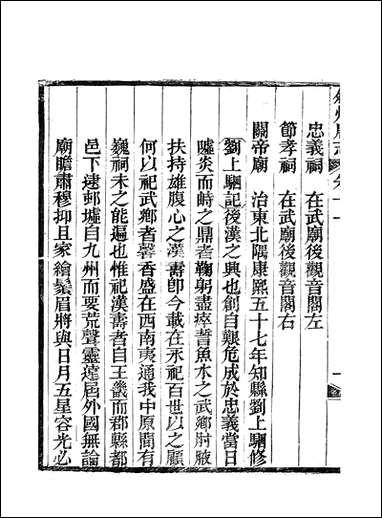 忠義祠　在武廟後觀音閣左
節孝祠　在武廟後觀音閣右
關帝廟　治東北隅康熙五十七年知縣劉上駟修
劉上駟記後漢之興也創自艱危成於忠義當日
噓炎而峙之鼎者鞠躬盡瘁誓魚水之武鄉肘腋
扶持雄腹心之漢壽卽今載在永祀百世以之顧
何以祀武鄉者馨香盛在西南夷通我中原閒有
巍祠未之能遍也惟祀漢壽者自王畿而郡縣都
邑下逮邨墟自九州而要荒聲靈遠屆外國無論
廟瞻肅穆抑且家繪鬚眉將與日月五星容光必